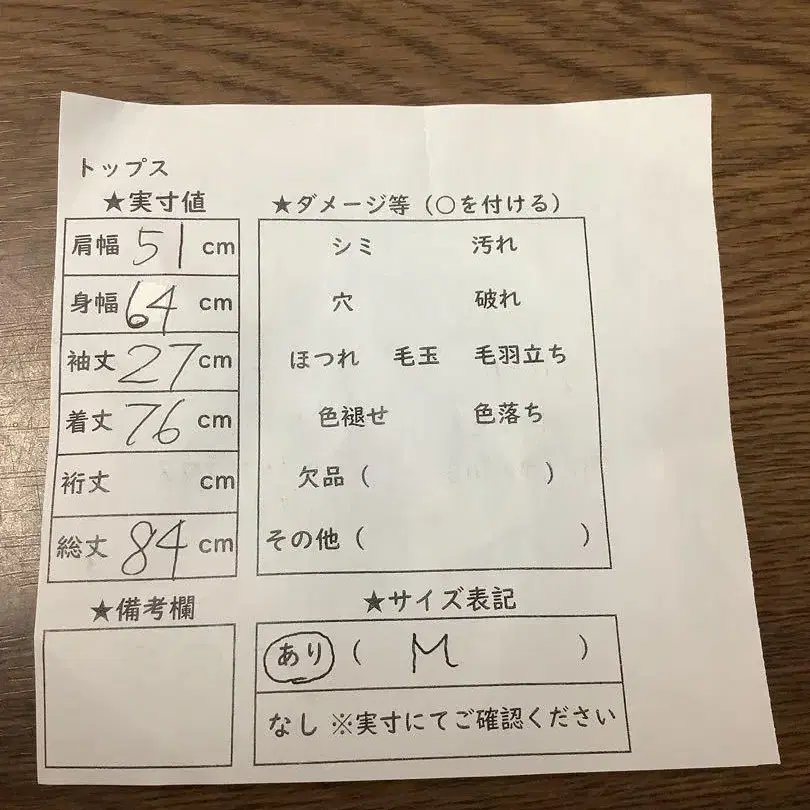 トップス
★実寸値
肩幅 51 cm
身幅 64 cm
袖丈 27 cm
着丈 76 cm
裄丈 cm
総丈 84 cm
★備考欄
★ダメージ等（○を付ける）
シミ 汚れ
穴 破れ
ほつれ 毛玉 毛羽立ち
色褪せ 色落ち
欠品（ ）
その他（ ）
★サイズ表記
あり（ M ）
なし ※実寸にてご確認ください